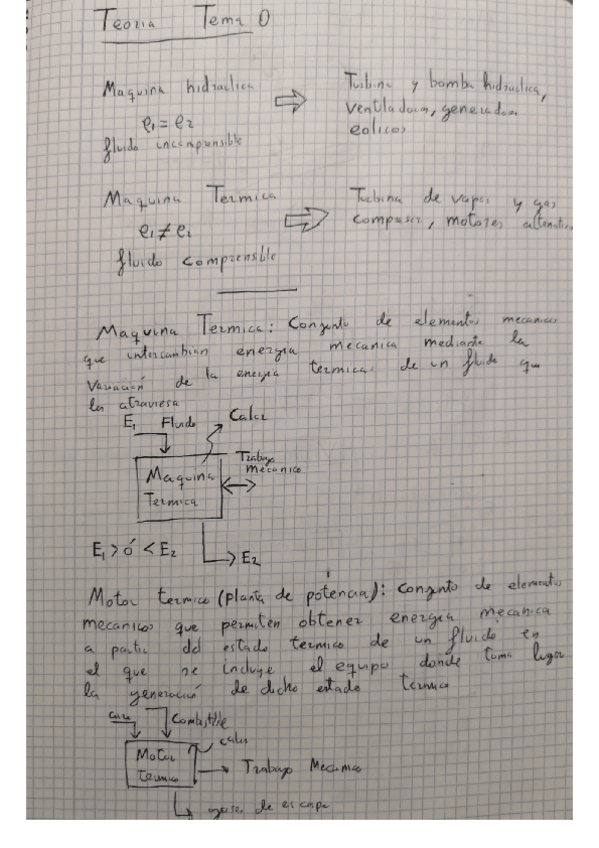 Teoria Tema 0
Maquina hidraulica ⇒ Turbina y bomba hidraulica,
ventiladores, generadores
e1 = e2
eolicos
fluido incomprensible
Maquina Termica ⇒ Turbina de vapor y gas
compresor, motores alternativ
e1 ≠ e2
fluido comprensible
Maquina Termica: Conjunto de elementos mecanicos
que intercambian energia mecanica mediante la
variación de la energia termica de un fluido que
los atraviesa
E1 Fluido Calor
Trabajo
mecanico
Maquina
Termica
E1 > ó < E2
E2
Motor termico (planta de potencia): conjunto de elementos
mecanicos que permiten obtener energia mecanica
a partir del estado termico de un fluido en
el que se incluye el equipo donde toma lugar
la generación de dicho estado termico
Combustible
calor
Motor
termico
Trabajo Mecanico
gases de escape